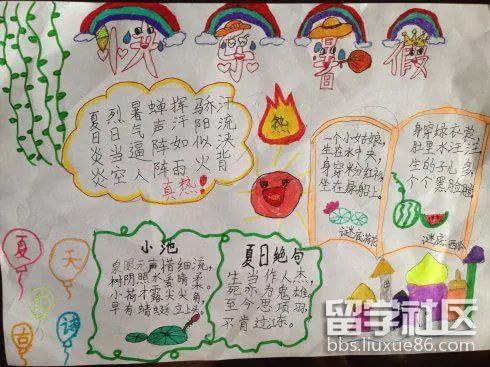 快乐暑假
夏日炎炎
烈日当空
暑气逼人
蝉声阵阵
挥汗如雨
骄阳似火
汗流浃背
真热！
热
一个小姑娘，
生在水中央，
身穿粉红衫，
坐在绿船上。
谜底：荷花
身穿绿衣裳，
肚里水汪汪，
生的子儿多，
个个黑脸膛。
谜底：西瓜
夏天古诗
小池
泉眼无声惜细流，
树阴照水爱晴柔。
小荷才露尖尖角，
早有蜻蜓立上头。
夏日绝句
生当作人杰，
死亦为鬼雄。
至今思项羽，
不肯过江东。
留学社区
bbs.liuxue86.com